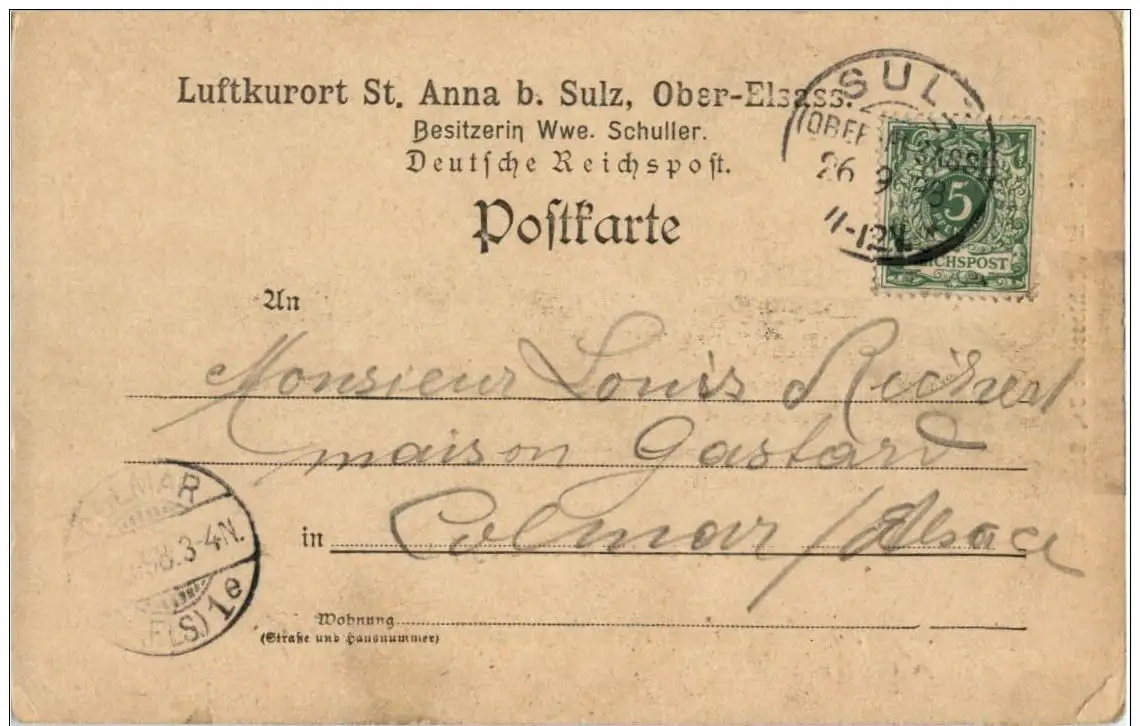 Luftkurort St. Anna b. Sulz, Ober-Elsass.
Besitzerin Wwe. Schuller.
Deutsche Reichspost.
Postkarte
SULZ
(OBER ELSASS)
26 9 98
11-12V.
5
REICHSPOST
An
Monsieur Louis Richert
maison Gastard
in Colmar / Alsace
COLMAR
98.3-4N.
ELS) 1e
Wohnung
(Straße und Hausnummer)